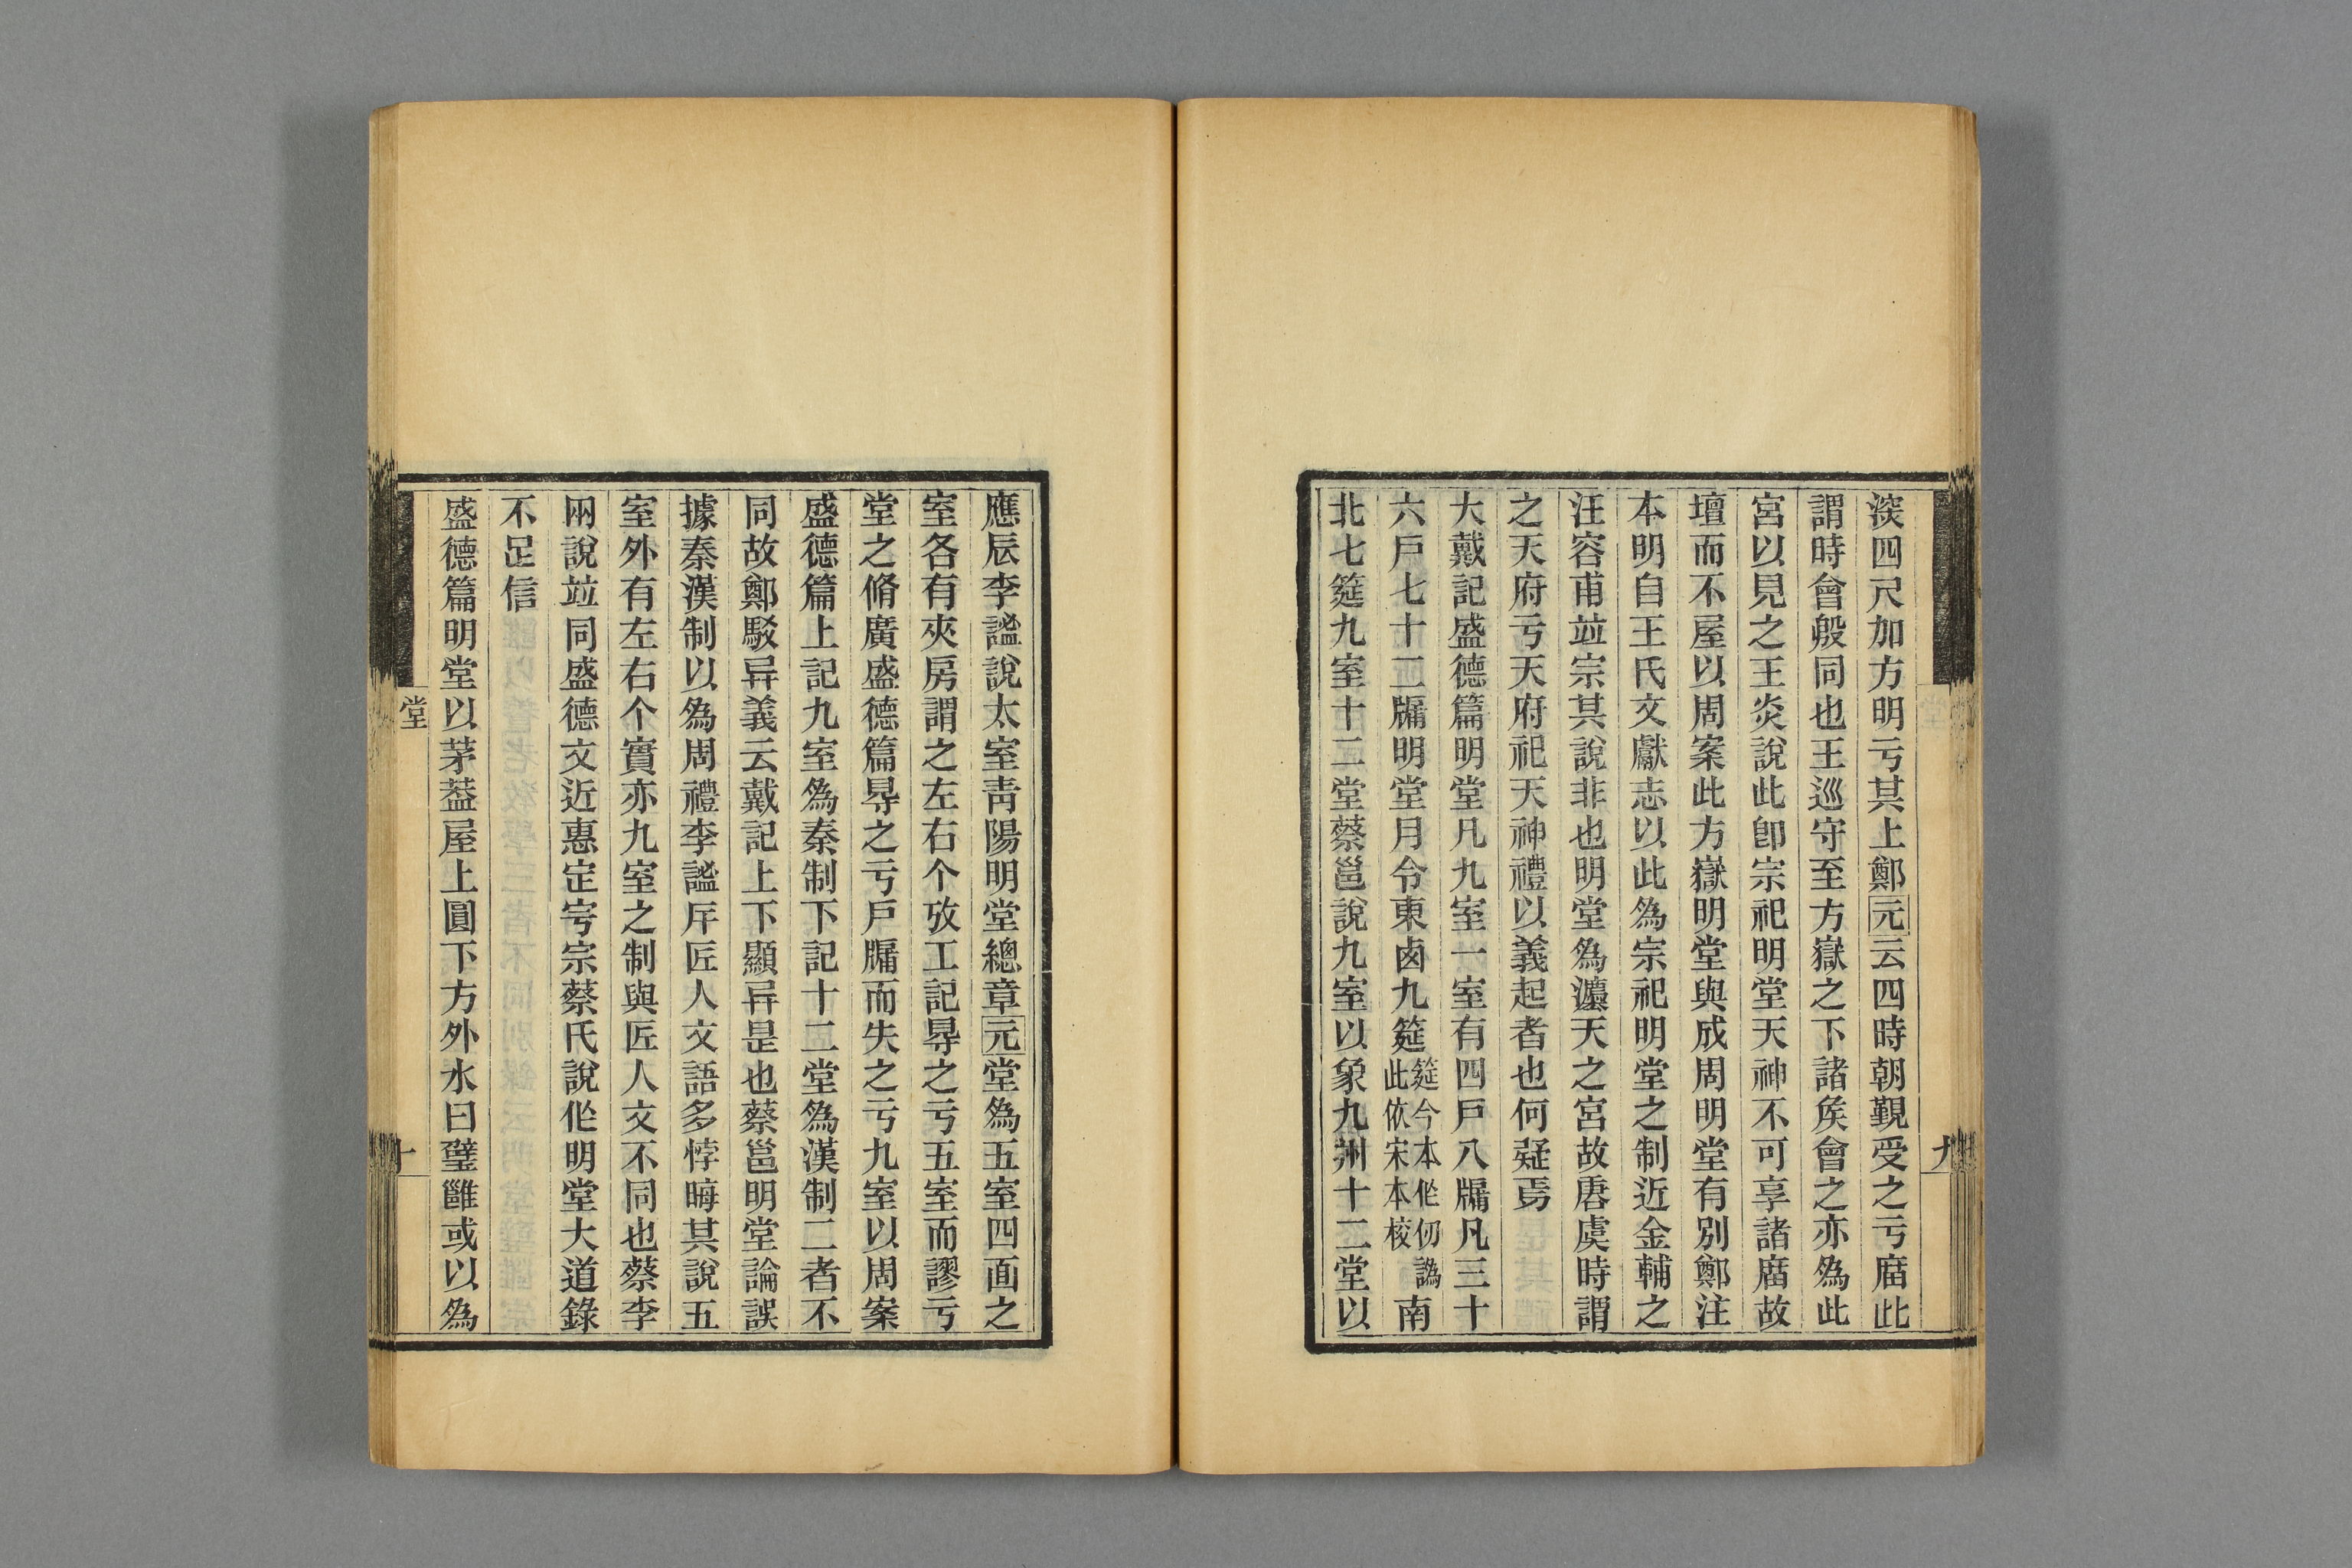 湥四尺加方明亏其上鄭元云四時朝覲受之亏庿此
謂時會殷同也王巡守至方嶽之下諸矦會之亦爲此
宮以見之王炎說此卽宗祀明堂天神不可享諸庿故
壇而不屋以周案此方嶽明堂與成周明堂有別鄭注
本明自王氏文獻志以此爲宗祀明堂之制近金輔之
汪容甫竝宗其說非也明堂爲灋天之宮故唐虞時謂
之天府亏天府祀天神禮以義起者也何疑焉
大戴記盛德篇明堂凡九室一室有四戶八牖凡三十
六戶七十二牖明堂月令東鹵九筵筵今本作仞譌此依宋本校南
北七筵九室十二堂蔡邕說九室以象九州十二堂以
應辰李謐說太室靑陽明堂總章元堂爲五室四面之
室各有夾房謂之左右个攷工記㝵之亏五室而謬亏
堂之脩廣盛德篇㝵之亏戶牖而失之亏九室以周案
盛德篇上記九室爲秦制下記十二堂爲漢制二者不
同故鄭駁异義云戴記上下顯异是也蔡邕明堂論誤
據秦漢制以爲周禮李謐厈匠人文語多悖晦其說五
室外有左右个實亦九室之制與匠人文不同也蔡李
兩說竝同盛德文近惠定宇宗蔡氏說作明堂大道錄
不足信
盛德篇明堂以茅葢屋上圓下方外水曰璧雝或以爲
堂
十
九